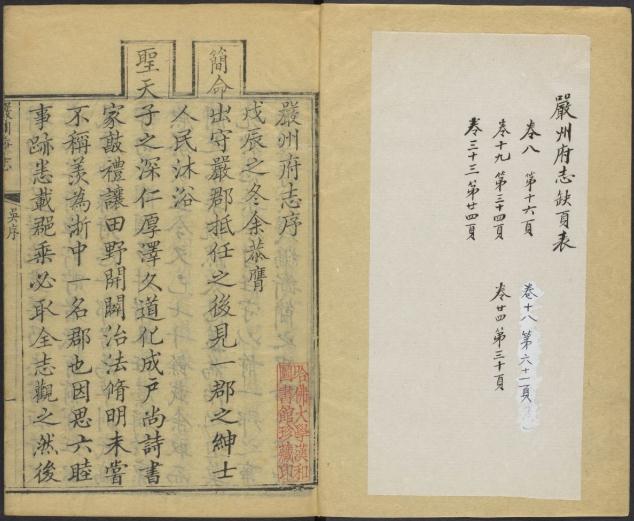 嚴州府志缺頁表
卷八 第十六頁
卷十八 第六十一頁
卷十九 第三十四頁
卷廿四 第三十頁
卷三十三 第廿四頁
嚴州府志序
戊辰之冬余恭膺
簡命出守嚴郡抵任之後見一郡之紳士
人民沐浴
聖天子之深仁厚澤久道化成戶尚詩書
家敦禮讓田野開闢治法脩明未嘗
不稱羨為浙中一名郡也因思六睦
事跡悉載郡乘必取全志觀之然後
吳序
一
哈佛大學漢和
圖書館珍藏印